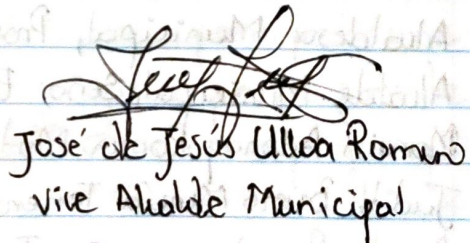 José de Jesús Ulloa Romero
Vice Alcalde Municipal